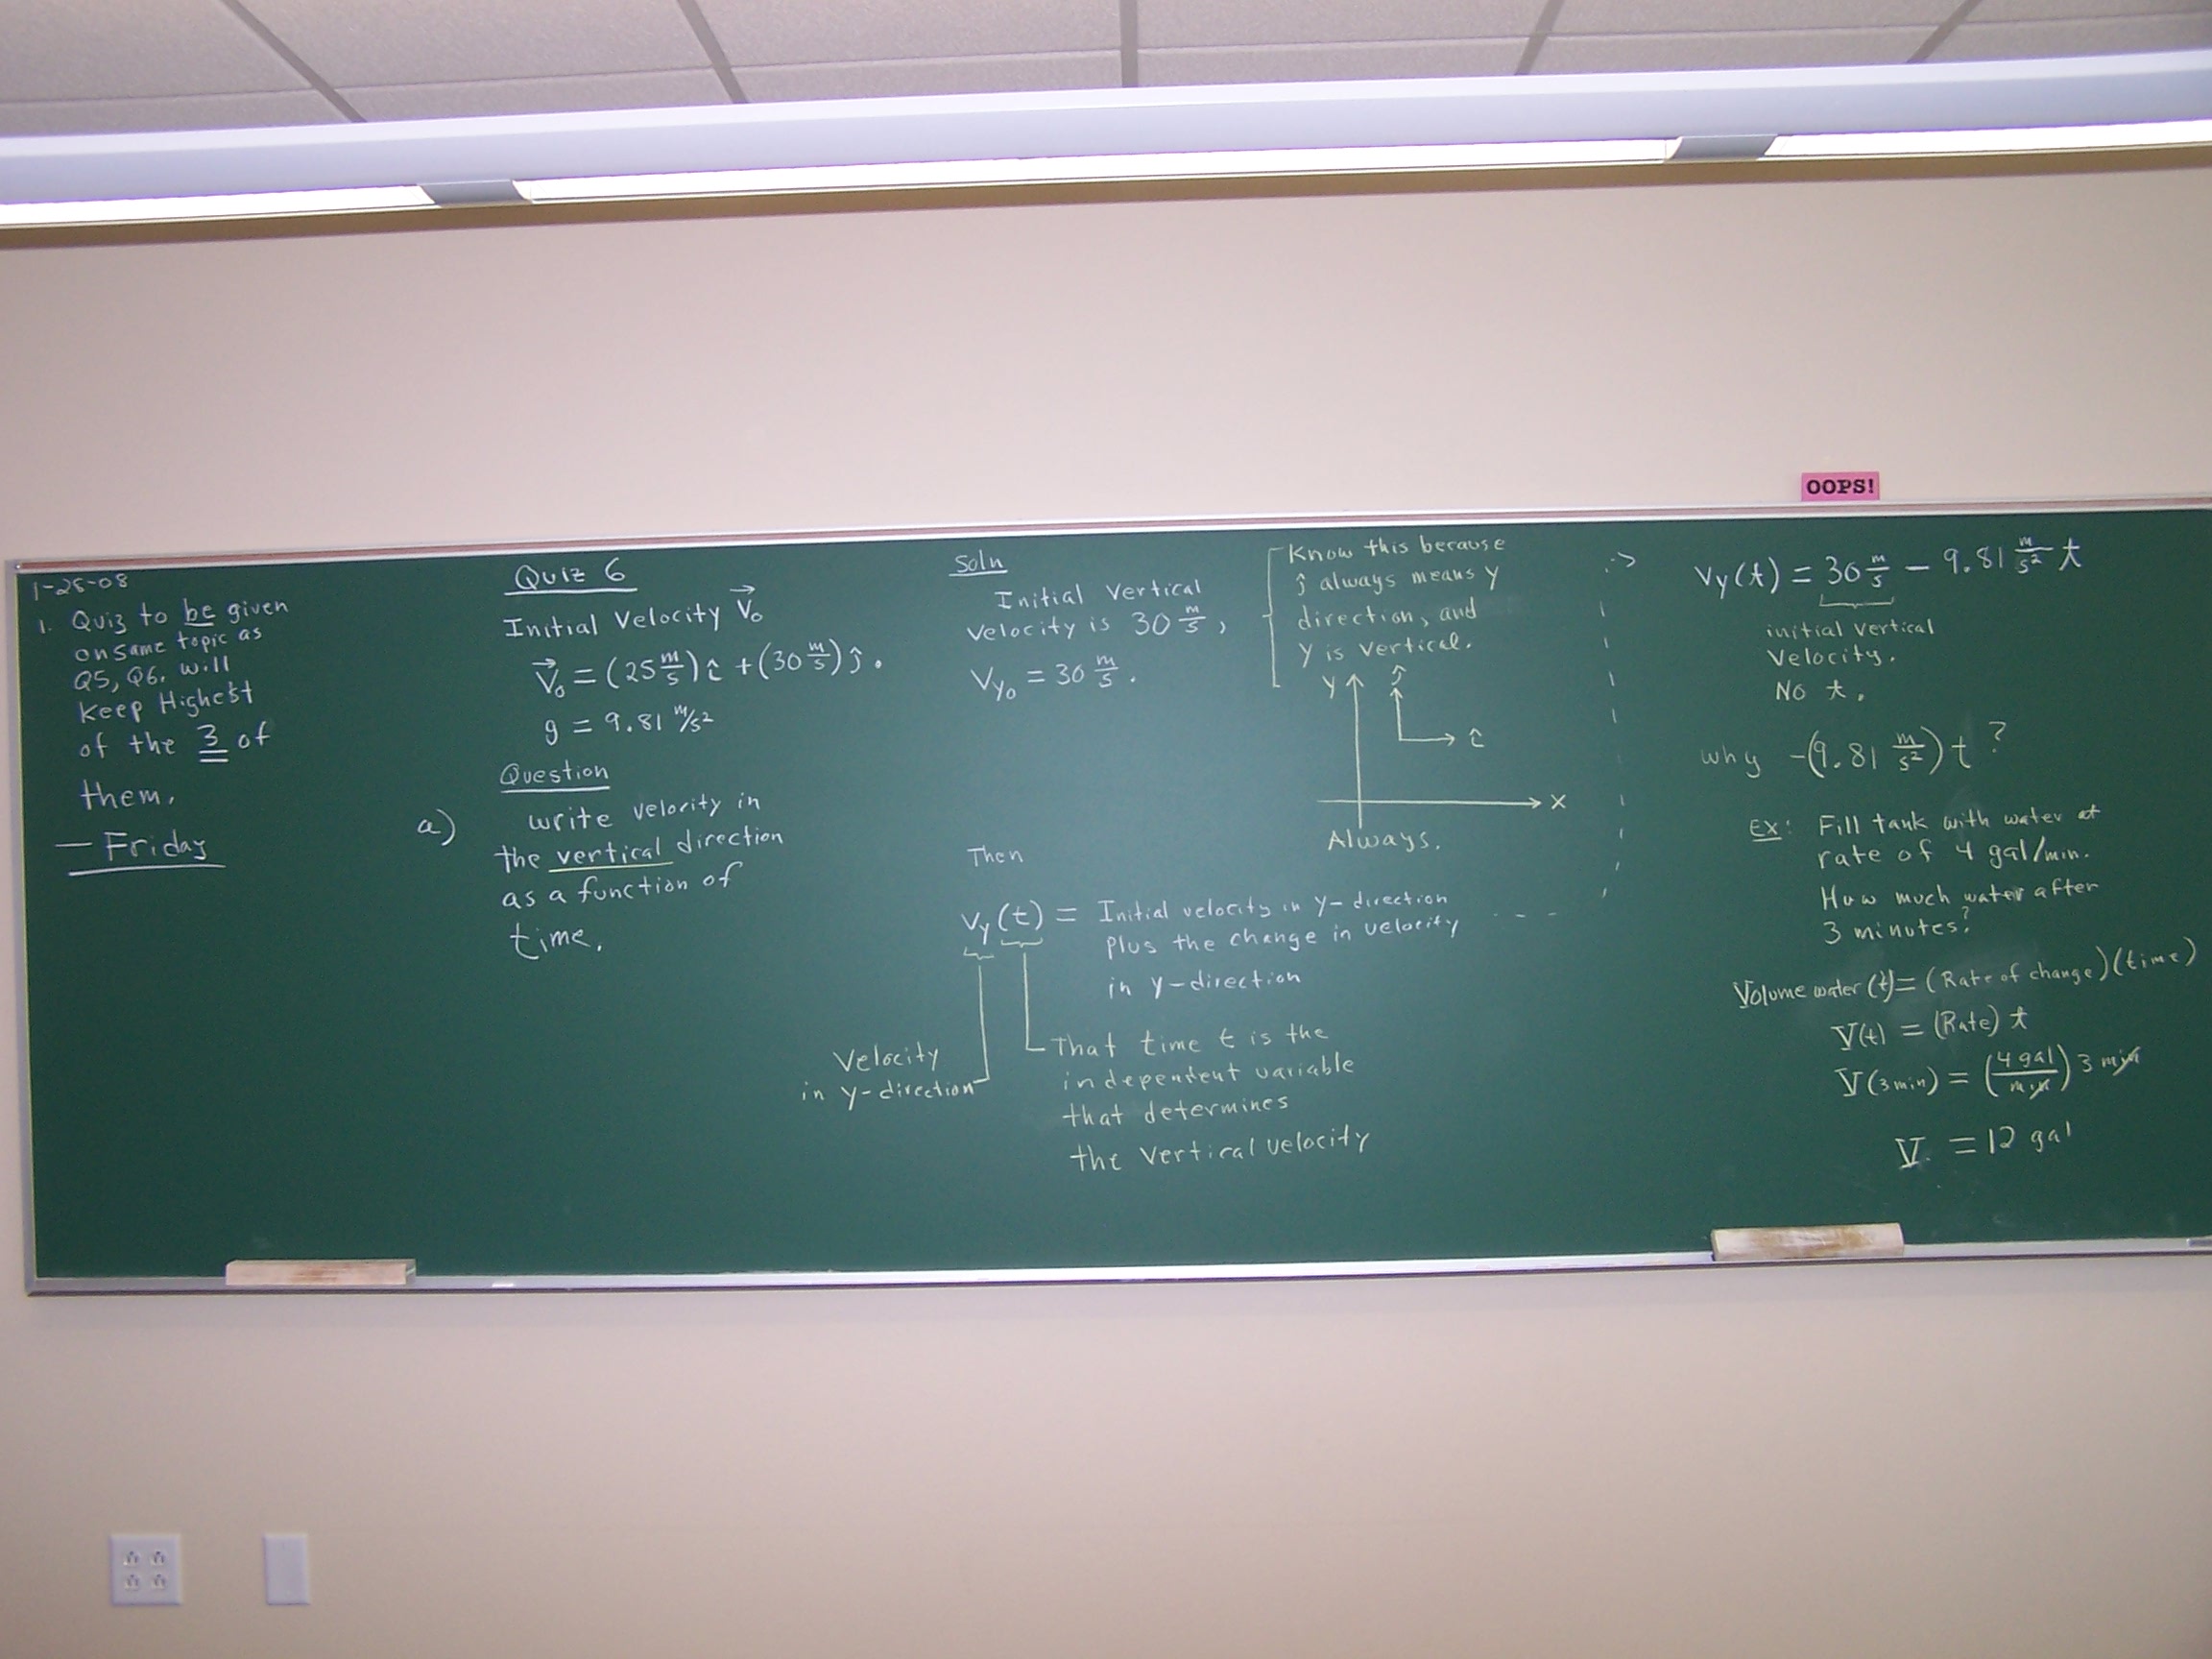 OOPS!
1-28-08
1. Quiz to be given
on same topic as
Q5, Q6. Will
Keep Highest
of the 3 of
them.
— Friday
Quiz 6
Initial Velocity V⃗₀
V⃗₀ = (25 m/s) î + (30 m/s) ĵ.
g = 9.81 m/s²
Question
a) write velocity in
the vertical direction
as a function of
time.
Soln
Initial Vertical
Velocity is 30 m/s,
Vy₀ = 30 m/s.
Know this because
ĵ always means y
direction, and
y is vertical.
y ĵ
î
x
Always.
Then
Vy(t) = Initial velocity in y-direction
plus the change in velocity
in y-direction
Velocity
in y-direction
That time t is the
independent variable
that determines
the vertical velocity
Vy(t) = 30 m/s − 9.81 m/s² t
initial vertical
Velocity.
No t.
why -(9.81 m/s²) t ?
Ex: Fill tank with water at
rate of 4 gal/min.
How much water after
3 minutes?
Volume water (t) = (Rate of change)(time)
V(t) = (Rate) t
V(3 min) = (4 gal/min) 3 min
V = 12 gal